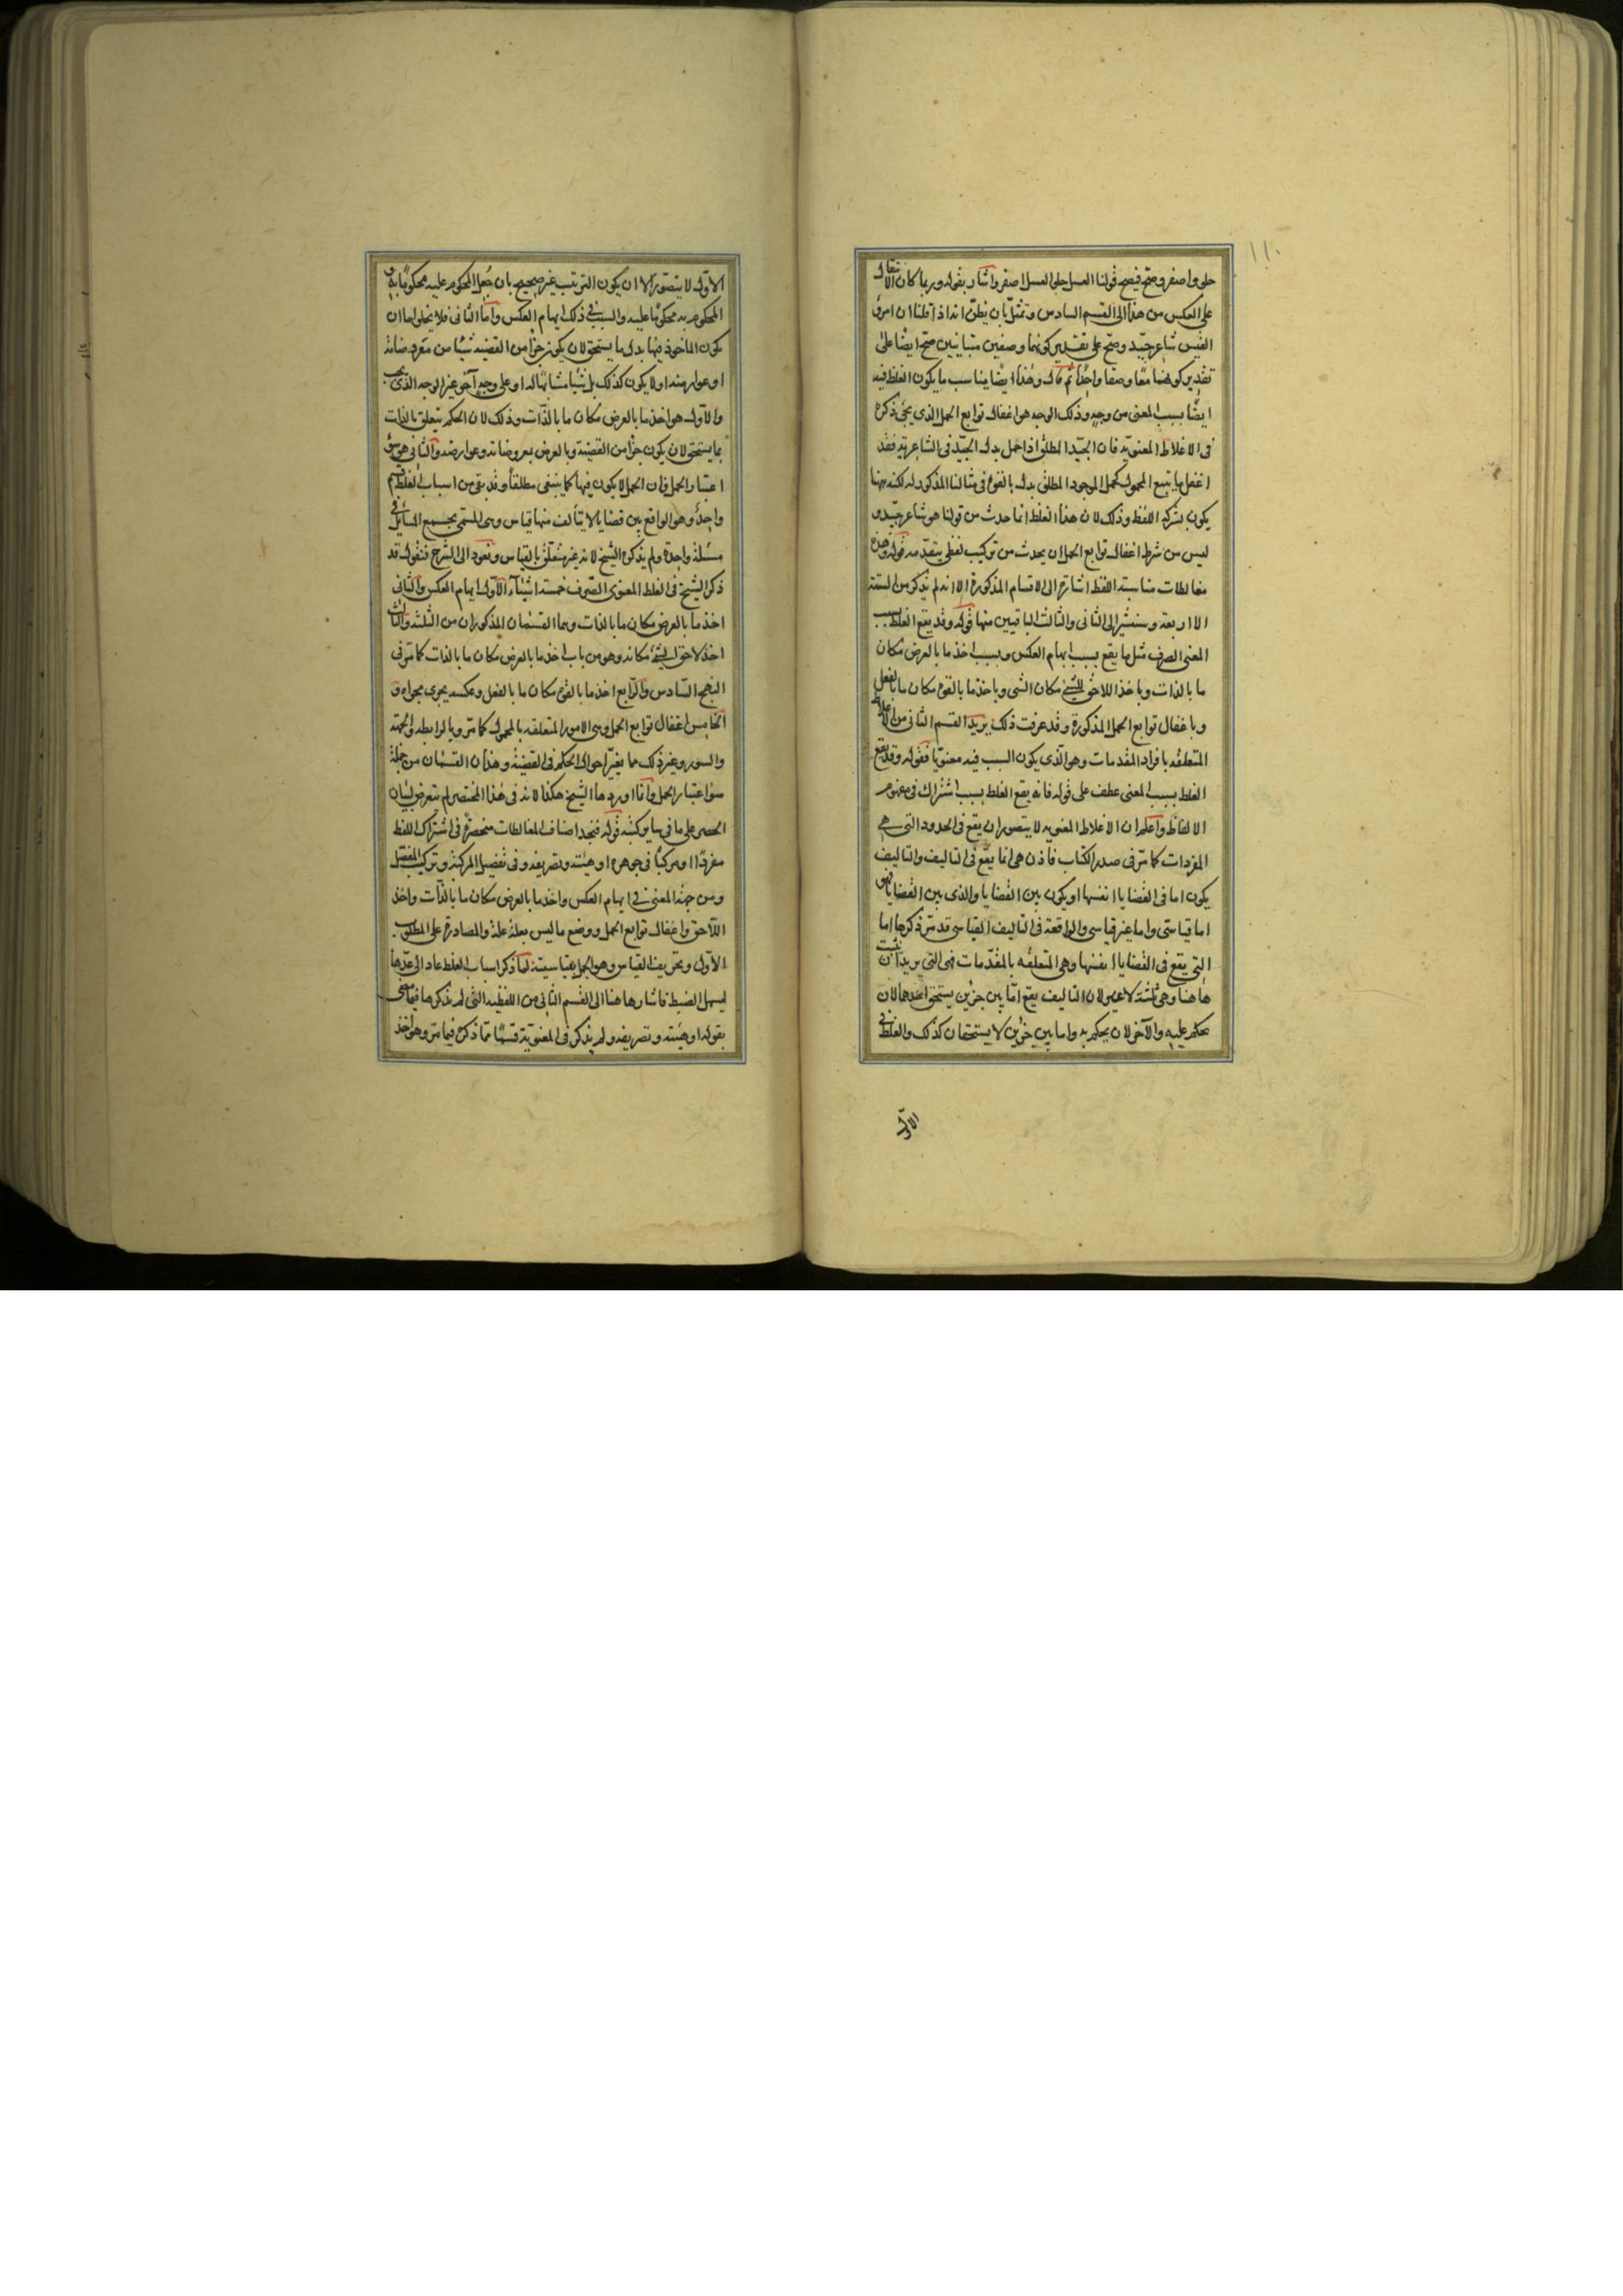 ١١٠
حلو واصفر وصح فيصح قولنا العسل حلو العسل اصفر واشار بقوله وربما كان الانتقال
على العكس من هذا الى القسم السادس وتمثل بان يظن انه اذا قلنا ان امرؤ
القيس شاعر جيد وصح على تقدير كونهما وصفين متباينين صح ايضا على
تقدير كونهما معا وصفا واحدا ثم قال وهذا ايضا يناسب ما يكون الغلط فيه
ايضا بسبب المعنى من وجه وذلك الوجه هو اغفال توابع الحمل الذي يجئ ذكره
في الاغلاط المعنوية فان الجيد المطلق اذا حمل بدل الجيد في الشاعرية فقد
اغفل ما يتبع المحمول كحمل الموجود المطلق بدل بالقوة في مثالنا المذكور له لكنه ههنا
يكون بشركة اللفظ وذلك لان هذا الغلط انما حدث من قولنا هو شاعر جيد و
ليس من شرط اغفال توابع الحمل ان يحدث من تركيب لفظي يتقدمه قوله وهذه
مغالطات مناسبة اللفظ اشارة الى الاقسام المذكورة الا انه لم يذكر من الستة
الا اربعة وسنشير الى الثاني والثالث الباقيين منها قوله وقد يقع الغلط بسبب
المعنى الصرف مثل ما يقع بسبب ايهام العكس وبسبب اخذ ما بالعرض مكان
ما بالذات وباخذ اللاحق للشئ مكان الشئ وباخذ ما بالقوة مكان ما بالفعل
وباغفال توابع الحمل المذكورة وقد عرفت ذلك يريد القسم الثاني من الاغلاط
المتعلقة بافراد المقدمات وهو الذي يكون السبب فيه معنويا فقوله وقد يقع
الغلط بسبب المعنى عطف على قوله فانه يقع الغلط بسبب اشتراك في مفهوم
الالفاظ واعلم ان الاغلاط المعنويه لا يتصور ان يقع في الحدود التي هي
المفردات كما مر في صدر الكتاب فاذن هي انما يقع في التاليف والتاليف
يكون اما في القضايا انفسها او يكون بين القضايا والذي بين القضايا فهو
اما قياسي واما غير قياسي والواقعة في التاليف القياسي قد مر ذكرها اما
التي يقع في القضايا انفسها وهي المتعلقه بالمقدمات فهي التي يريد ان يثبت
هاهنا وهي ثلثة لا غير لان التاليف يقع اما بين جزئين يستحق احدهما لان
يحكم عليه والآخر لان يحكم به واما بين جزئين لا يستحقان كذلك والغلط في
الاول
الاول لا يتصور الا ان يكون الترتيب غير صحيح بان جعل المحكوم عليه محكوما به و
المحكوم به محكوما عليه والسبب في ذلك ايهام العكس واما الثاني فلا يخلو اما ان
يكون الماخوذ فيها بدل ما يستحق لان يكون جزأ من القضيه شيئا من معروضاته
او عوارضه او لا يكون كذلك بل شيئا مشابها له او على وجه آخر غير الوجه الذي يجب
والاول هو اخذ ما بالعرض مكان ما بالذات وذلك لان الحكم يتعلق بالذات
بما يستحق لان يكون جزأ من القضية وبالعرض بمعروضاته وعوارضه والثاني هو سؤ
اعتبار الحمل فان الحمل لا يكون فيها كما ينبغي مطلقا وقد بقى من اسباب الغلط قسم
واحد وهو الواقع بين قضايا لا يتألف منها قياس وهي المسمى بجمع المسائل في
مسئلة واحدة ولم يذكره الشيخ لانه غير متعلق بالقياس ونعود الى الشرح فنقول قد
ذكر الشيخ في الغلط المعنوي الصرف خمسة اشيآء الاول ايهام العكس والثاني
اخذ ما بالعرض مكان ما بالذات وهما القسمان المذكوران من الثلثة والثالث
اخذ لاحق الشئ مكانه وهو من باب اخذ ما بالعرض مكان ما بالذات كما مر في
النهج السادس والرابع اخذ ما بالقوة مكان ما بالفعل وعكسه يجرى مجراه و
الخامس اغفال توابع الحمل وهي الامور المتعلقه بالمحمول كما مر وبالرابطه والجهة
والسور وغير ذلك مما يغير احوال الحكم في القضية وهذان القسمان من جملة
سؤ اعتبار الحمل وانما اوردها الشيخ هكذا لانه في هذا المختصر لم يتعرض لبيان
الحصر على ما في ساير كتبه قوله فتجد اصناف المغالطات منحصرة في اشتراك اللفظ
مفردا او مركبا في جوهره او هيئته وتصريفه وفي تفصيل المركب وتركيب المفصل
ومن جهة المعنى في ايهام العكس واخذ ما بالعرض مكان ما بالذات واخذ
اللاحق واغفال توابع الحمل ووضع ما ليس بعلة علة والمصادرة على المطلوب
الاول وتحريف القياس وهو الجهل بقياسيته لما ذكر اسباب الغلط عاد الى عدها
ليسهل الضبط فاشار هاهنا الى القسم الثاني من اللفظيه التي لم يذكرها فيما مضى
بقوله او هيئته وتصريفه ولم يذكر في المعنوية قسما مما ذكره فيما مر وهو اخذ